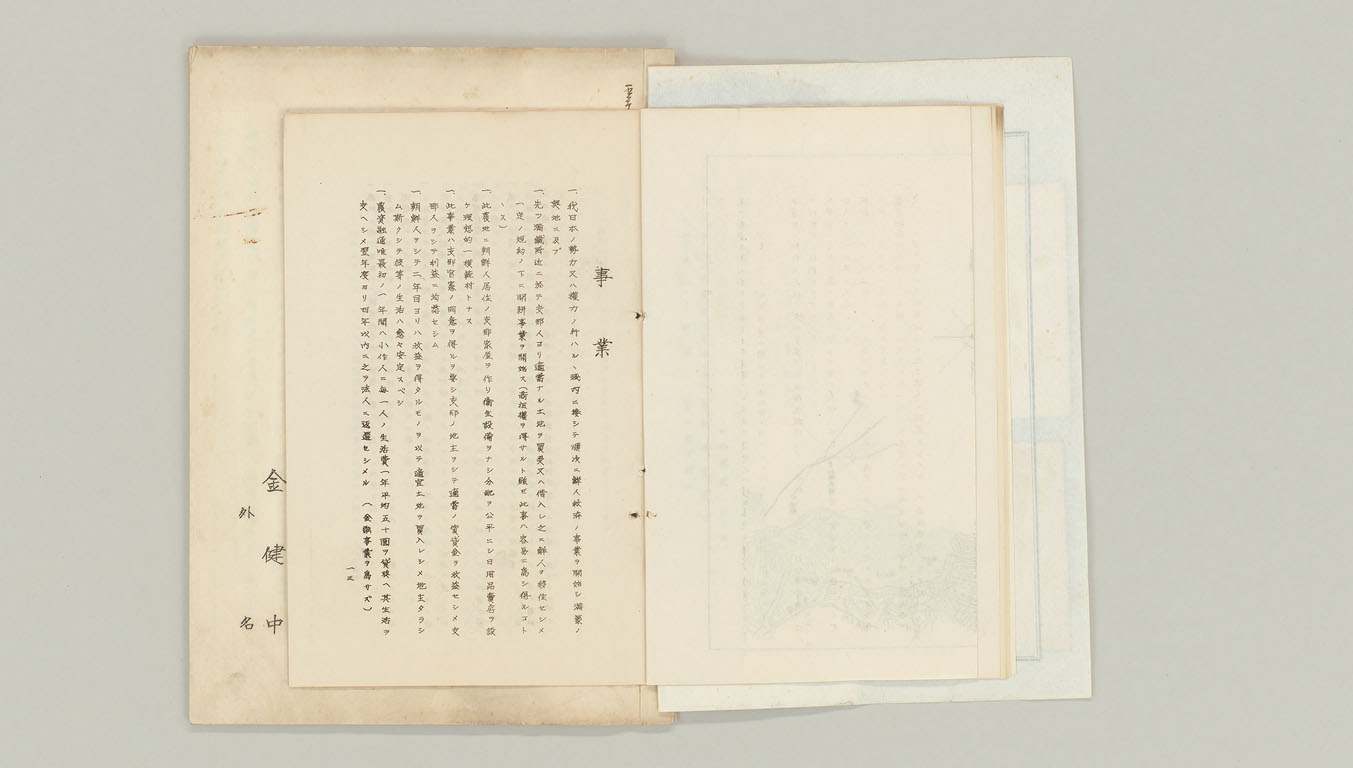 事業
一、我日本ノ勢力又ハ權力ノ行ハルヽ域内ニ接シテ順次ニ鮮人救濟ノ事業ヲ開始シ滿蒙ノ
奥地ニ及ブ
一、先ヅ滿鐵附近ニ於テ支那人ヨリ適當ナル土地ヲ買受又ハ借入レ之ニ鮮人ヲ移住セシメ
一定ノ規約ノ下ニ開耕事業ヲ開始ス(商租權ヲ得サルト雖モ此事ハ容易ニ爲シ得ルコト
ヽス)
一、此農地ニ朝鮮人居住ノ支那家屋ヲ作リ衞生設備ヲナシ分配ヲ公平ニシ日用品賣店ヲ設
ケ理想的一模範村トナス
一、此事業ハ支那官憲ノ同意ヲ得ルヲ要シ支那ノ地主ヲシテ適當ノ賃貸金ヲ收益セシメ支
那人ヲシテ利益ニ均霑セシム
一、朝鮮人ヲシテ二年目ヨリハ收益ヲ得タルモノヲ以テ適宜土地ヲ買入レシメ地主タラシ
ム斯クシテ彼等ノ生活ハ愈々安定スベシ
一、農資融通唯最初ノ一年間ハ小作人ニ每一人ノ生活費(一年平均五十圓ヲ貸與ヘ其生活ヲ
支ヘシメ翌年度ヨリ四年以内ニ之ヲ法人ニ返還セシメル (金融事業ヲ爲サズ)
一五
金健中
外 名